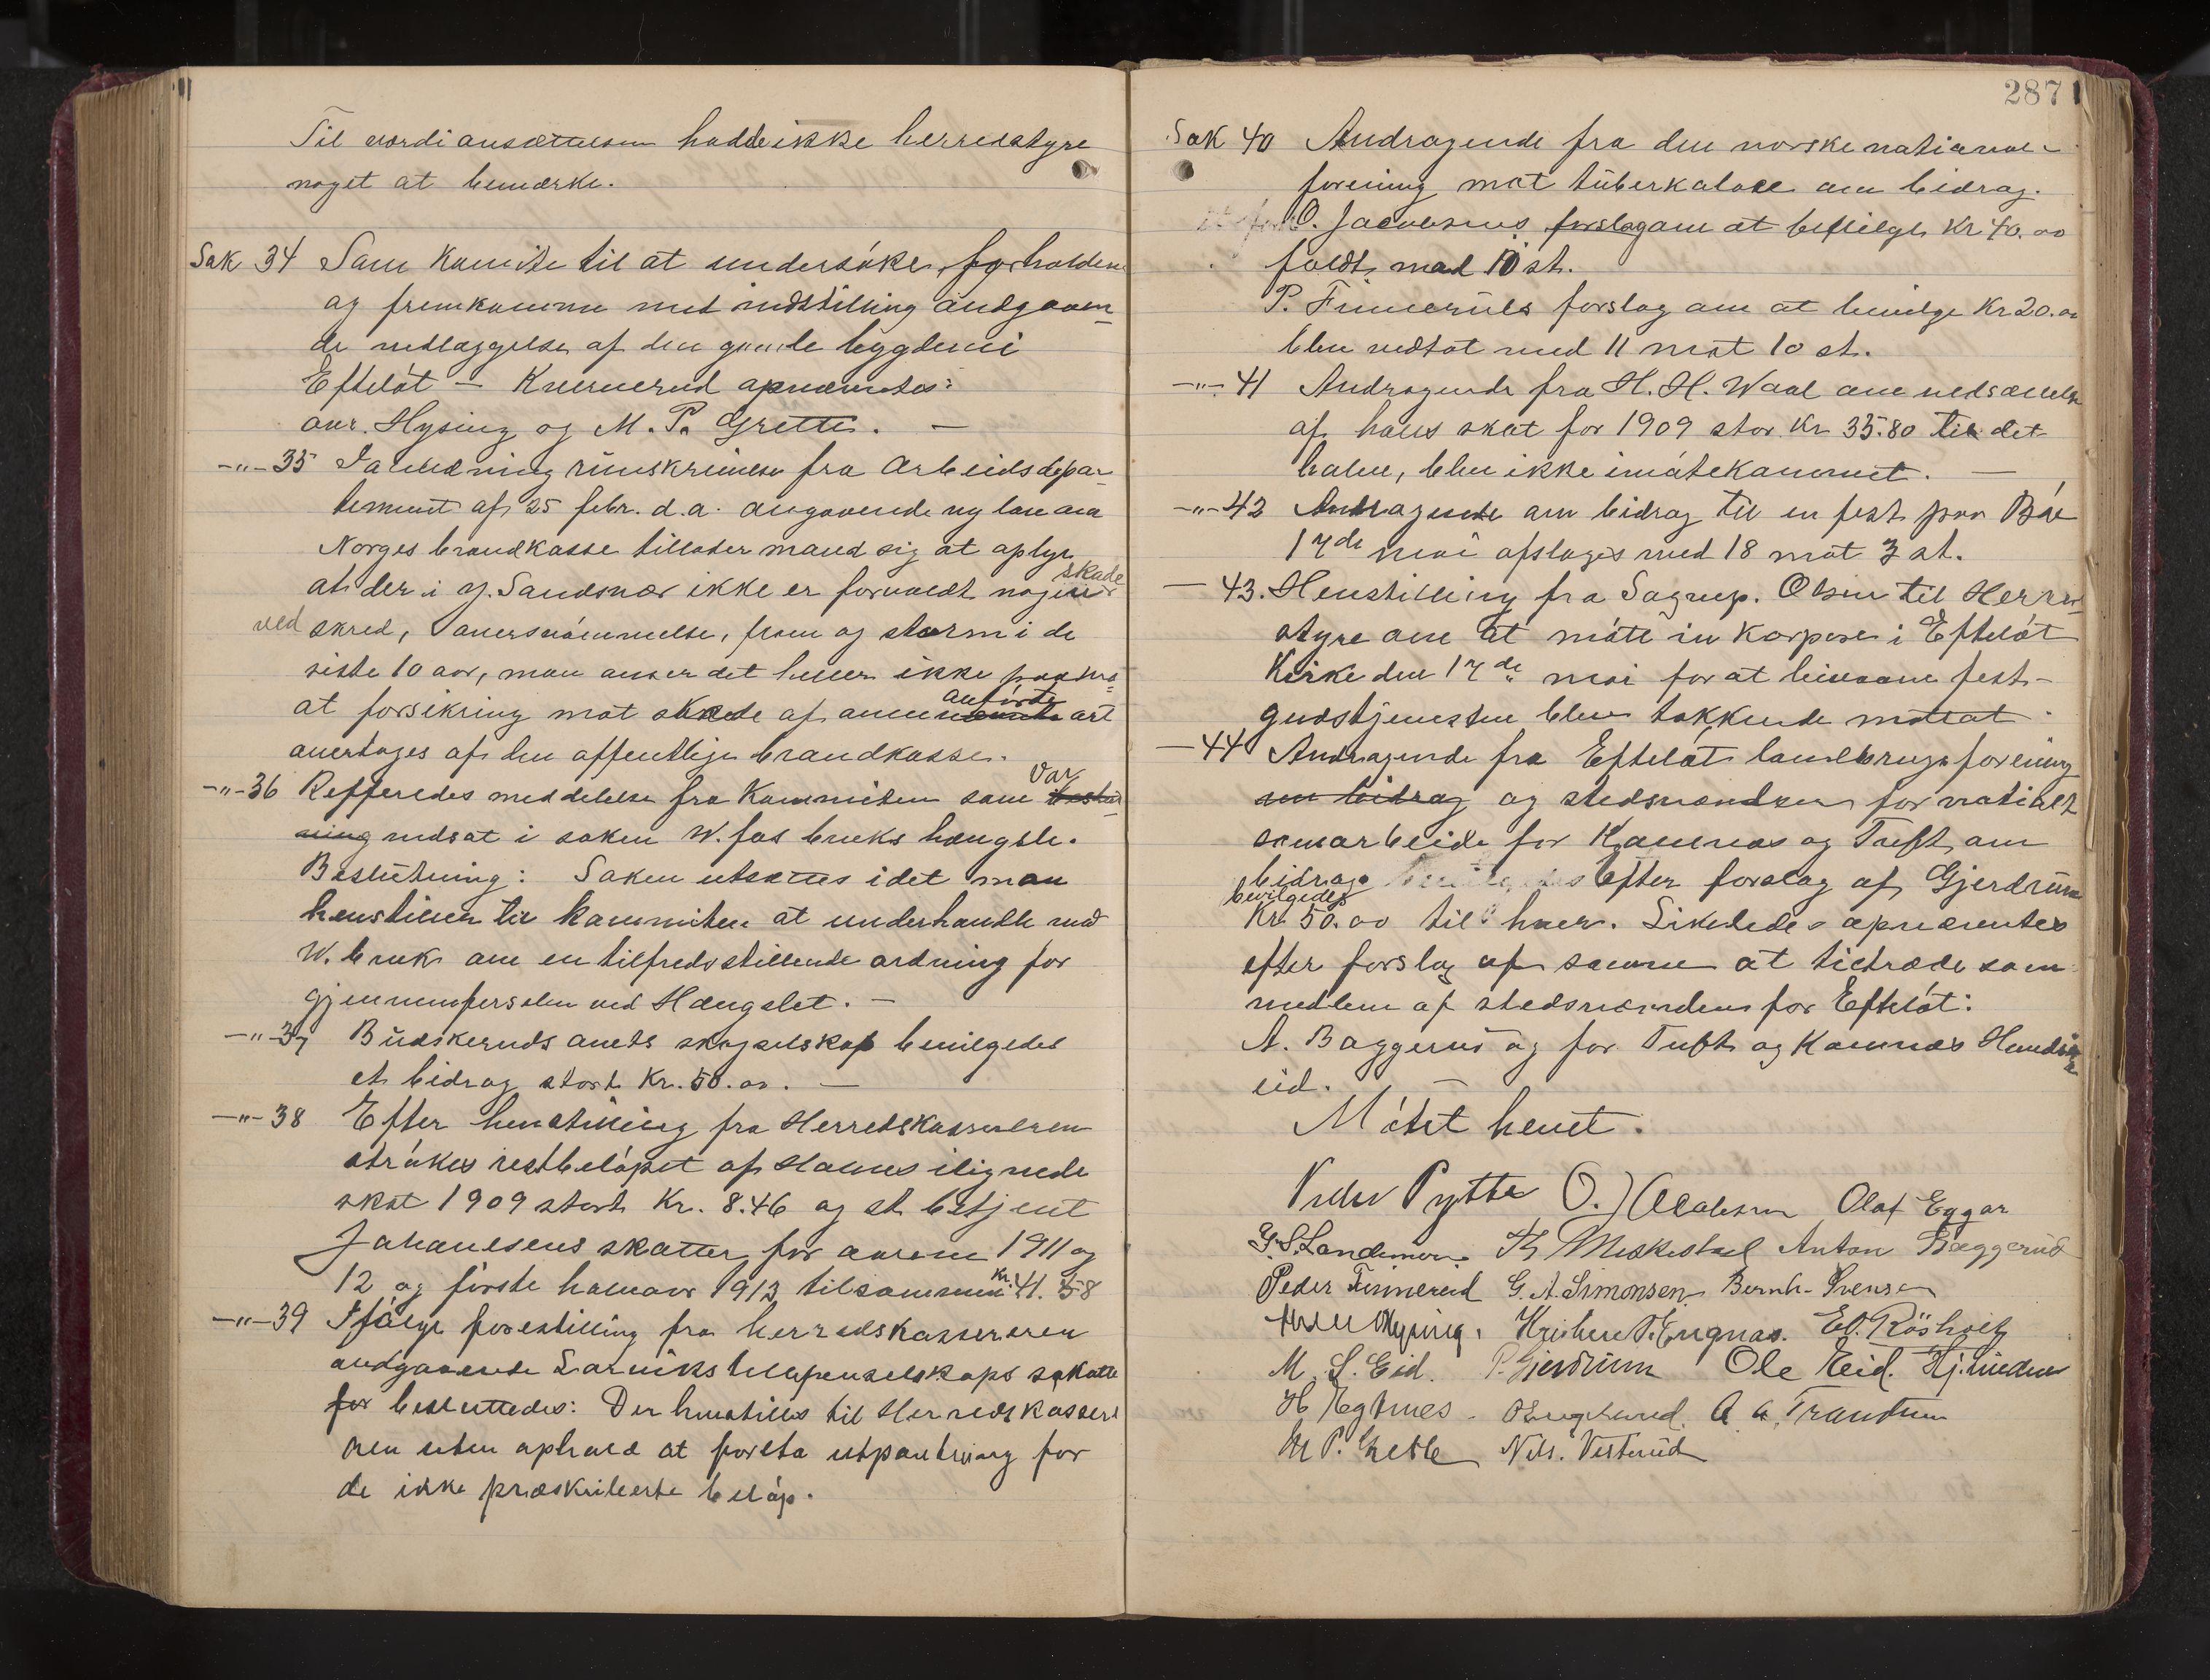 Til værdiansættelsen hadde ikke herredstyre
noget at bemærke.
Sak 34 Som komite til at undersöke forholdene
og fremkomme med indstilling andgaaen-
de nedlæggelse af den gamle bygdevei
Eftelöt — Knerverud opnævntes:
ovr. Hysing og M. P. Grette. —
-"- 35 I anledning rundskrivelse fra Arbeidsdepar-
tement af 25 febr. d.a. angaaende ny lov om
Norges brandkasse tillater man sig at oplyse
at der i y. Sandsvær ikke er forvoldt nogen skade
ved skred, oversvömmelse, flom og storm i de
siste 10 aar, man anser det heller ikke paakræ-
at forsikring mot skade af anförte art
overtages af den offentlige brandkasse.
-"- 36 Refferedes meddelelse fra Kommiteen som var
nedsat i saken W. fos bruks hængsle.
Beslutning: Saken utsættes idet man
henstiller til kommiteen at underhandle med
W. bruk om en tilfredsstillende ordning for
gjennemferselen ved Hængslet. —
-"- 37 Buskeruds amts skogselskap bevilgedes
et bidrag stort Kr. 50.00. —
-"- 38 Efter henstilling fra Herredskassereren
strökes restbelöpet af Holmes ilignede
skat 1909 stort Kr. 8.46 og st. betjent
Johannesens skatter for aarene 1911 og
12 og förste halvaar 1913 tilsammen Kr. 41.58
-"- 39 Ifölge forestilling fra herredskassereren
andgaaende Larviks telefonselskaps skatte
for besluttedes: Der henstilles til Herredskassere
ren uten ophold at foreta utpantning for
de ikke præskriberte belöp.
287
Sak 40 Andragende fra den norske national-
forening mot tuberkulose om bidrag.
O. Jacobsens forslag om at bevilge Kr 40.00
faldt med 10 st.
P. Finneruds forslag om at bevilge Kr 20.00
blev vedtat med 11 mot 10 st.
-"- 41 Andragende fra H. H. Waal om nedsættelse
af hans skat for 1909 stor Kr 35.80 til det
halve, blev ikke imötekommet. —
-"- 42 Andragende om bidrag til en fest paa Bæ
17de mai afsloges med 18 mot 3 st.
— 43. Henstilling fra Sognep. Olsen til Herreds-
styre om at möte in korpore i Eftelöt
Kirke den 17de mai for at bivaane fest-
gudstjenesten blev takkende mottat.
— 44 Andragende fra Eftelöt landbruksforening
om bidrag og stedsnævnden for nationalt
samarbeide for Komnes og Tuft om
bidrag. Efter forslag af Gjerdrum
bevilgedes
Kr. 50.00 til hver. Likeledes opnævntes
efter forslag af samme at tiltræde som
medlem af stedsnævnden for Eftelöt:
A. Baggerud og for Tuft og Komnes Hendrik
eid.
Mötet hevet.
Peder Pytte O. Jacobsen Olaf Eggar
G. S. Landemoen Kr Meskestad Anton Baggerud
Peder Finnerud G. A. Simonsen Bernh. Svensen
Hysing. Kristian S. Engnæs. Ed. Rösholt
M. S. Eid. P. Gjerdrum Ole Eid. Hj. Linden
H Hegtnes A. A. Trandum
M P. Grette Nils. Vesterud